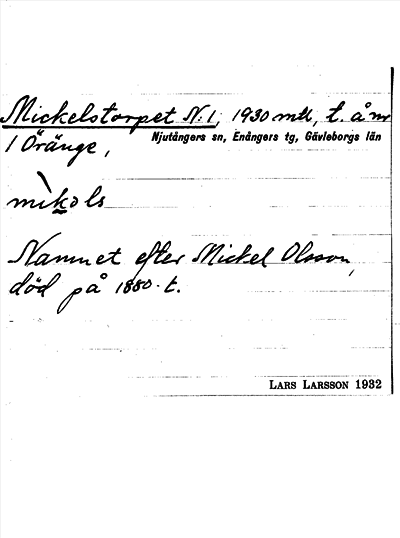 Mickelstorpet N:1, 1930 mtl, t. å nr
1 Öränge, Njutångers sn, Enångers tg, Gävleborgs län
mìkols
Namnet efter Mickel Olsson,
död på 1880-t.
LARS LARSSON 1932